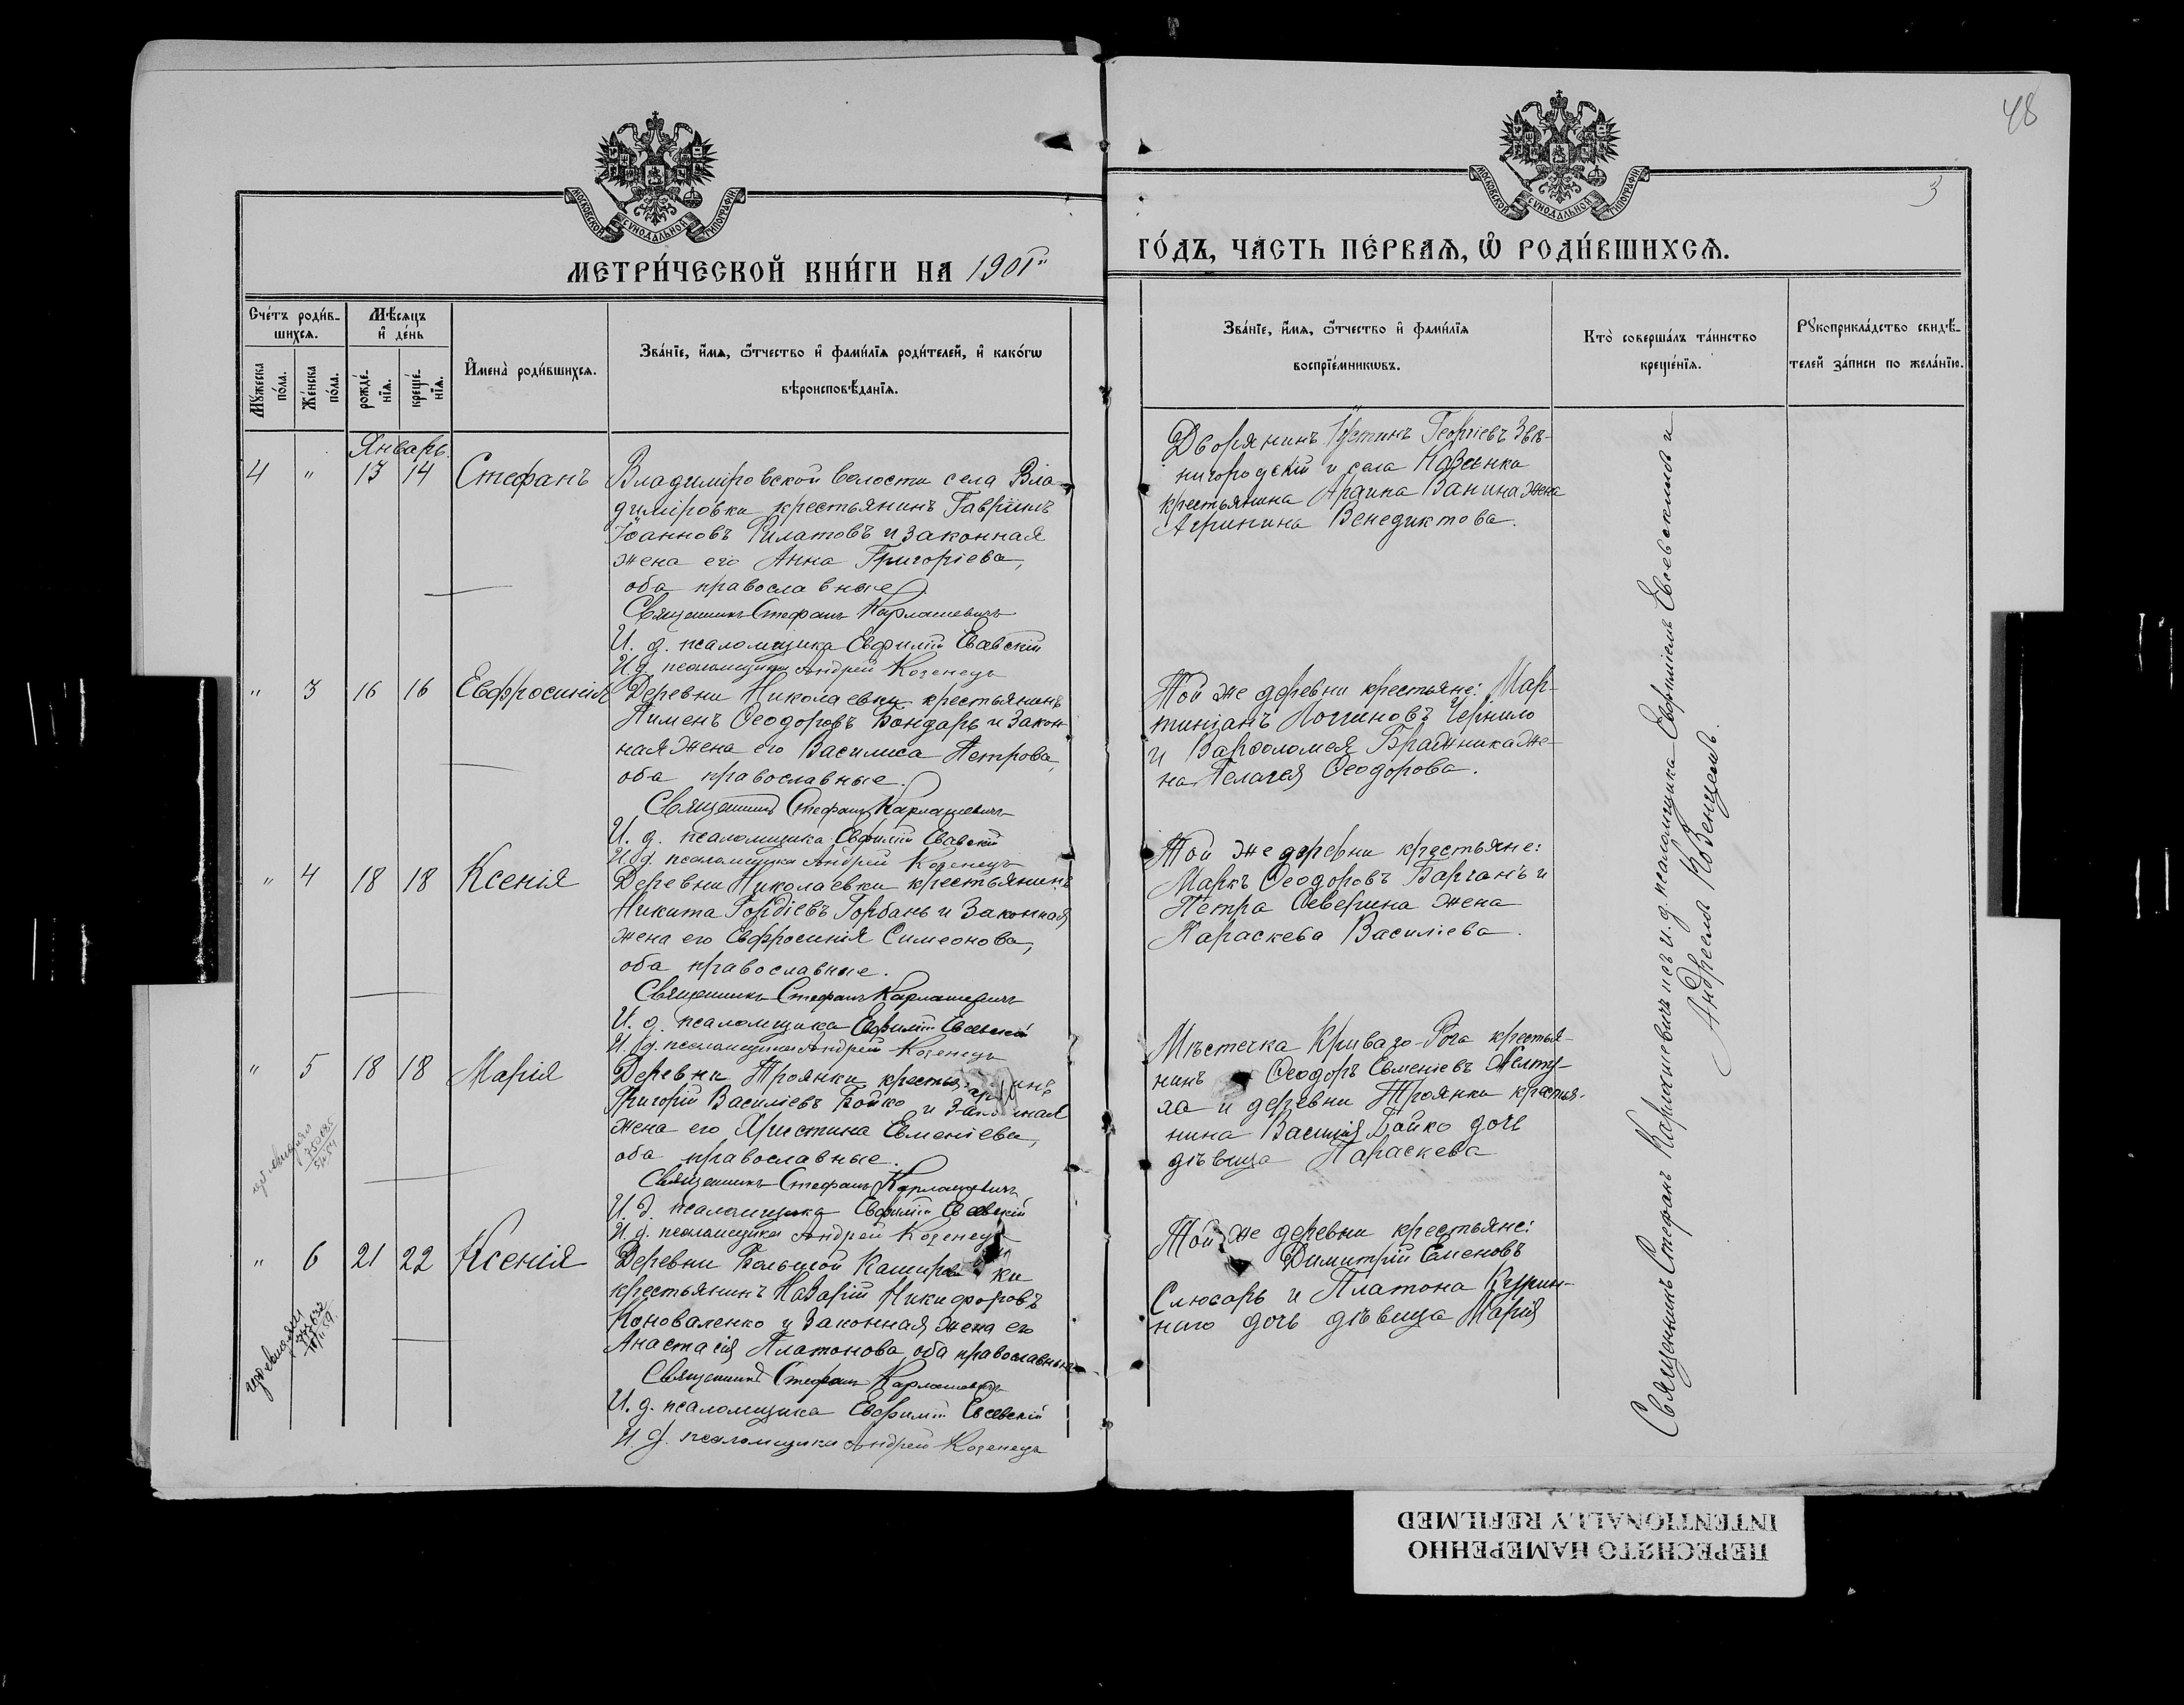 48
3
МОСКОВСКОЙ СУНОДАЛЬНОЙ ТИПОГРАФІИ
МОСКОВСКОЙ СУНОДАЛЬНОЙ ТИПОГРАФІИ
МЕТРИ́ЧЕСКОЙ КНИ́ГИ НА 1901й
ГО́ДЪ, ЧА́СТЬ ПЕ́РВАЯ, Ѡ҆ РОДИ́ВШИХСЯ.
Сче́тъ роди́в-
шихся.
Му́жеска по́ла.
Же́нска по́ла.
Мѣ́сяцъ
и҆ де́нь
рожде́-
нїя.
креще́-
нїя.
И҆мена̀ роди́вшихся.
Зва́нїе, и҆́мя, ѻ҆́тчество и҆ фами́лїя роди́телей, и҆ како́гѡ
вѣроисповѣ́данїя.
Зва́нїе, и҆́мя, ѻ҆́тчество и҆ фами́лїя
воспрїе́мникѡвъ.
Кто̀ соверша́лъ та́инство
креще́нїя.
Рꙋкоприкла́дство свидѣ́-
телей за́писи по жела́нїю.
Январь.
4 " 13 14 Стефанъ
Владиміровской волости села Вла-
диміровки крестьянинъ Гавріилъ
Іоанновъ Филатовъ и законная
жена его Анна Григоріева,
оба православные
Священникъ Стефанъ Карлашевичъ
И. д. псаломщика Евфимій Евсевскій
И. д. псаломщика Андрей Козенецъ
Дворянинъ Іустинъ Георгіевъ Зве-
нигородскій и села Казанка
крестьянина Ванина жена
Агрипина Венедиктова.
" 3 16 16 Евфросинія
Деревни Николаевки крестьянинъ
Пименъ Ѳеодоровъ Бондарь и закон-
ная жена его Василиса Петрова,
оба православные.
Священникъ Стефанъ Карлашевичъ
И. д. псаломщика Евфимій Евсевскій
И. д. псаломщика Андрей Козенецъ
Той же деревни крестьяне: Мар-
тиніанъ Логиновъ Чернило
и Варѳоломея Бражника же-
на Пелагея Ѳеодорова.
" 4 18 18 Ксенія
Деревни Николаевки крестьянинъ
Никита Гордіевъ Горбань и законная
жена его Евфросинія Симеонова,
оба православные.
Священникъ Стефанъ Карлашевичъ
И. д. псаломщика Евфимій Евсевскій
И. д. псаломщика Андрей Козенецъ
Той же деревни крестьяне:
Маркъ Ѳеодоровъ Барганъ и
Петра Северина жена
Параскева Василіева.
" 5 18 18 Марія
Деревни Троянки крестья инъ
Григорій Василіевъ Бойко и законная
жена его Христина Евменіева,
оба православные.
Священникъ Стефанъ Карлашевичъ
И. д. псаломщика Евфимій Евсевскій
И. д. псаломщика Андрей Козенецъ
Мѣстечка Кривазо-Рога крестья-
нинъ Ѳеодоръ Евменіевъ Желту-
ха и деревни Троянки крестья-
нина Василія Бойко дочь
дѣвица Параскева
" 6 21 22 Ксенія
Деревни Большой Каширов ки
крестьянинъ Назарій Никифоровъ
Коноваленко и законная жена его
Анастасія Платонова, оба православные
Священникъ Стефанъ Карлашевичъ
И. д. псаломщика Евфимій Евсевскій
И. д. псаломщика Андрей Козенецъ
Той же деревни крестьяне:
Димитрій Семеновъ
Слюсарь и Платона
дочь дѣвица Марія
Священникъ Стефанъ Карлашевичъ съ и. д. псаломщика Евфиміемъ Евсевскимъ и
Андреемъ Козенцемъ.
ПЕРЕСНЯТО НАМЕРЕННО
INTENTIONALLY REFILMED